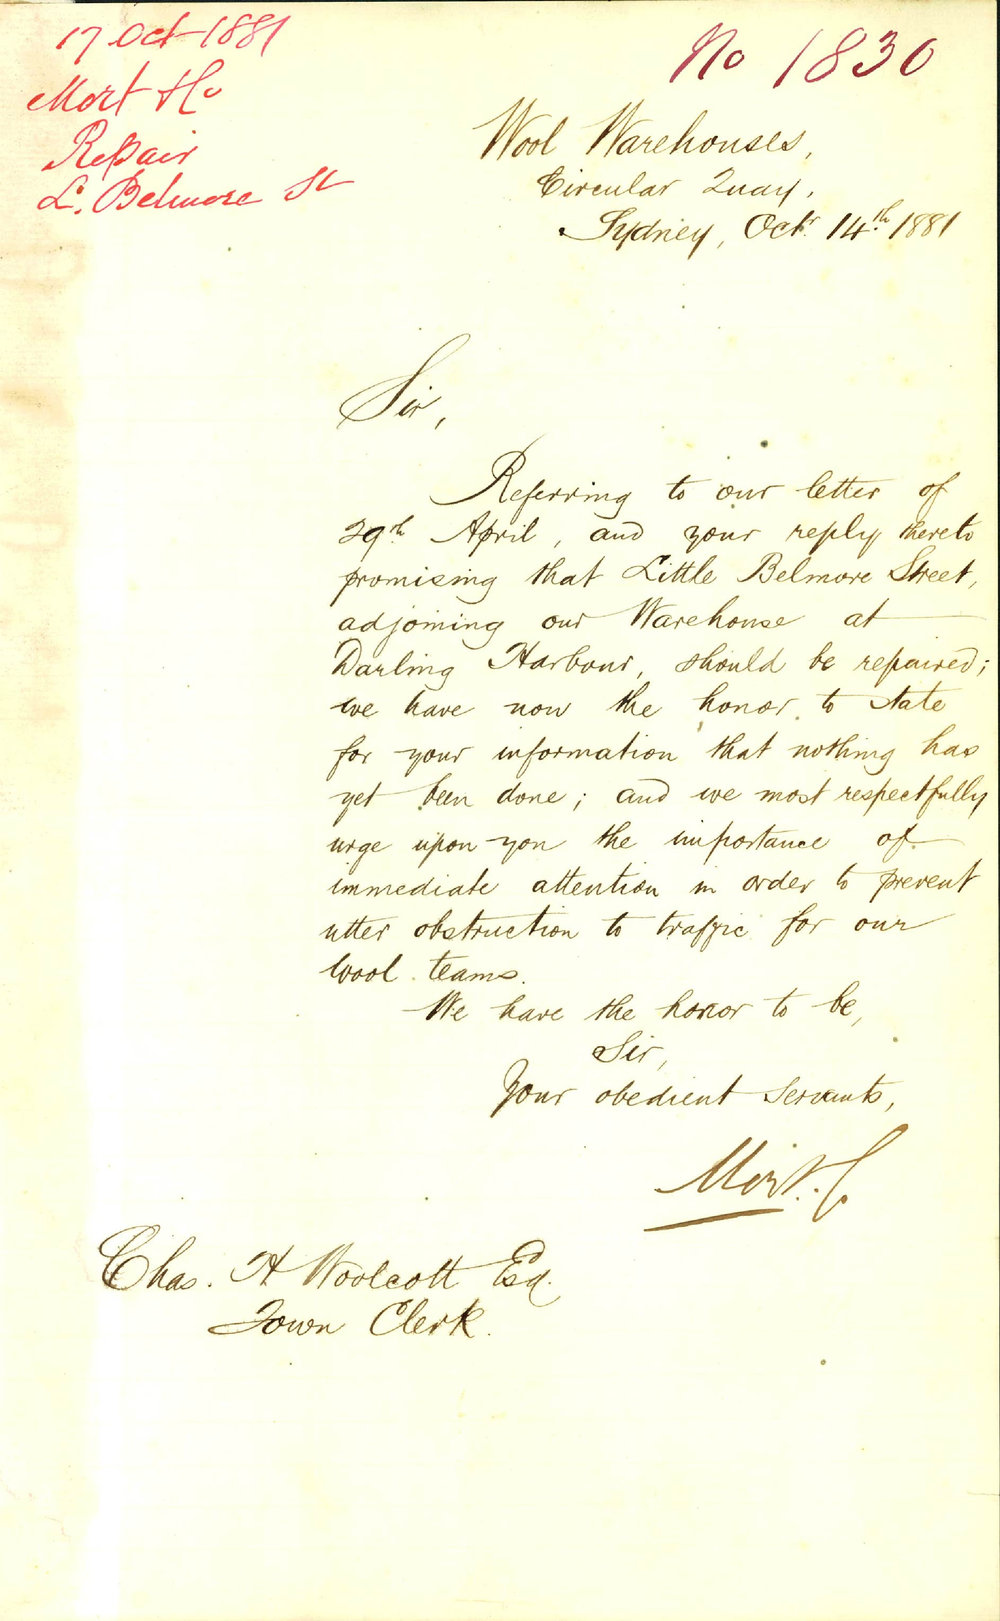 17 Oct 1881
Mort & Co
Repair
L. Belmore St
No 1830
Wool Warehouses,
Circular Quay,
Sydney, Octr. 14th. 1881
Sir,
Referring to our letter of
29th April, and your reply thereto
promising that Little Belmore Street,
adjoining our Warehouse at
Darling Harbour, should be repaired;
we have now the honor to state
for your information that nothing has
yet been done; and we most respectfully
urge upon you the importance of
immediate attention in order to prevent
utter obstruction to traffic for our
wool teams.
We have the honor to be,
Sir,
Your obedient servants,
Mort & Co
Chas. H Woolcott Esq.
Town Clerk.